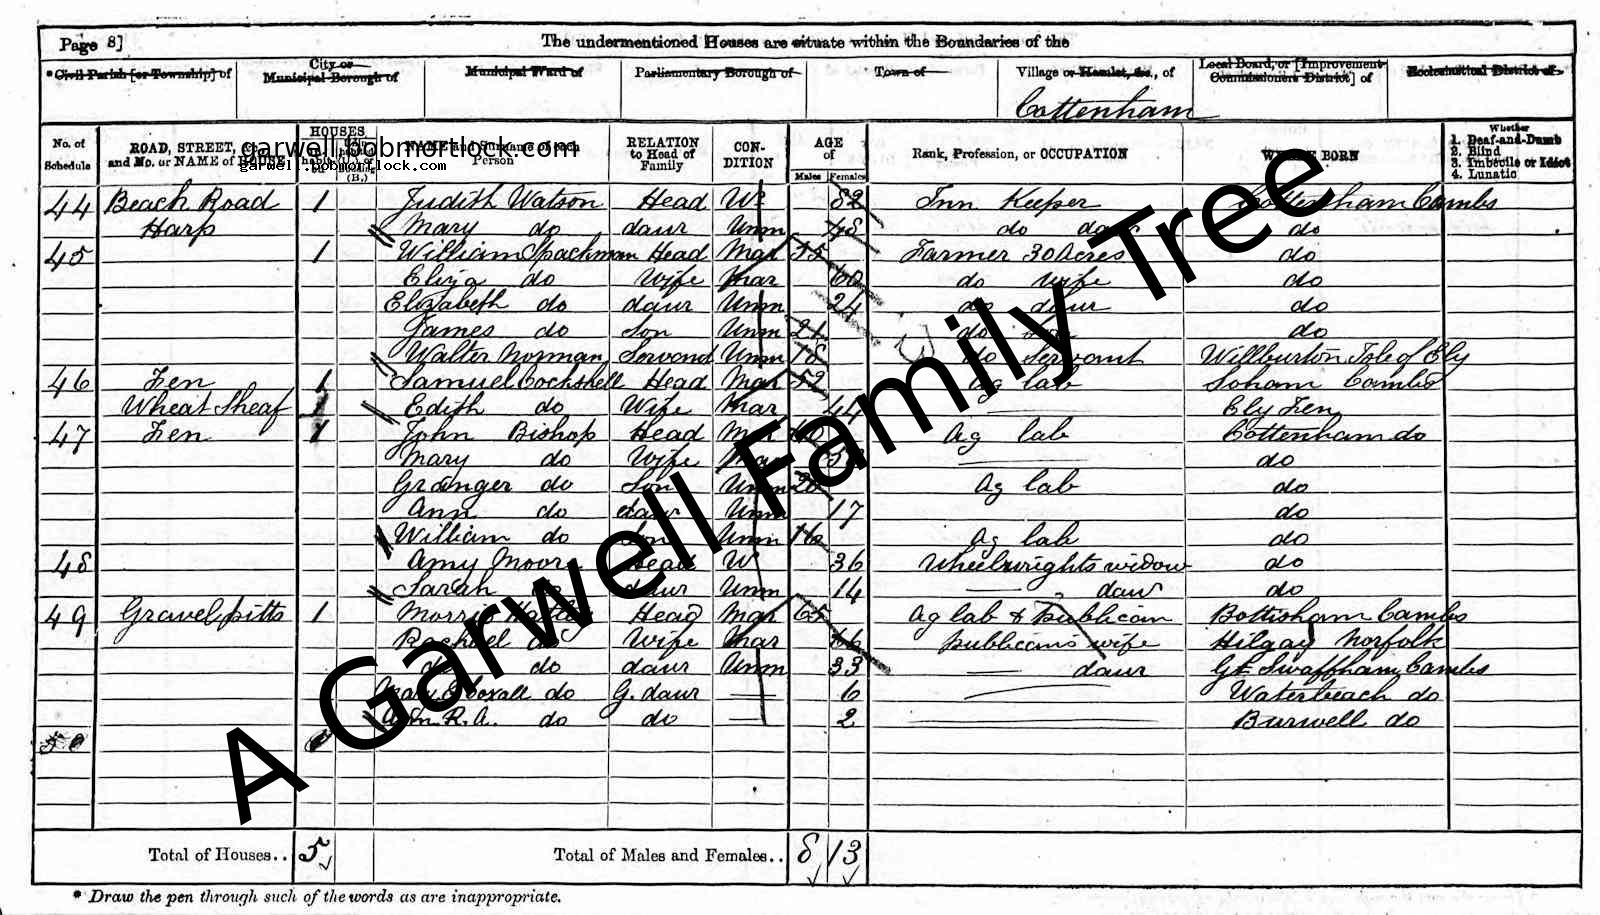 Page 8]
The undermentioned Houses are situate within the Boundaries of the
*Civil Parish [or Township] of City or Municipal Borough of Municipal Ward of Parliamentary Borough of Town of Village or Hamlet, &c., of Local Board, or [Improvement Commissioners District] of Ecclesiastical District of
Cottenham
No. of Schedule ROAD, STREET, &c., and No. or NAME of HOUSE HOUSES NAME and Surname of each Person RELATION to Head of Family CON-DITION AGE of Males Females Rank, Profession, or OCCUPATION WHERE BORN Whether 1. Deaf-and-Dumb 2. Blind 3. Imbecile or Idiot 4. Lunatic
garwell.bobmortlock.com
garwell.bobmortlock.com
44 Beach Road 1 Judith Watson Head W 82 Inn Keeper Cottenham Cambs
Harp Mary do daur Unm 48 do daur do
45 1 William Spachman Head Mar 55 Farmer 30 Acres do
Eliza do Wife Mar 60 do wife do
Elizabeth do daur Unm 24 do daur do
James do Son Unm 21 do do
Walter Norman Servand Unm 18 do Servant Willburton Isle of Ely
46 Fen 1 Samuel Cockshell Head Mar 52 Ag lab Soham Cambs
Wheat Sheaf Edith do Wife Mar 44 Ely Fen
47 Fen 1 John Bishop Head Mar Ag lab Cottenham do
Mary do Wife Mar do
Granger do Son Unm 20 Ag lab do
Ann do daur Unm 17 do
William do Son Unm 16 Ag lab do
48 Amy Moore Head W 36 Wheelwrights widow do
Sarah daur Unm 14 daur do
49 Gravel pitts 1 Morris Head Mar 65 Ag lab & Publican Bottisham Cambs
Rachael do Wife Mar 66 publicans wife Hilgay Norfolk
do daur Unm 33 daur Gt Swaffham Cambs
do G. daur 6 Waterbeach do
Ann R. A. do do 2 Burwell do
50
A Garwell Family Tree
Total of Houses.. 5 Total of Males and Females.. 8 13
* Draw the pen through such of the words as are inappropriate.